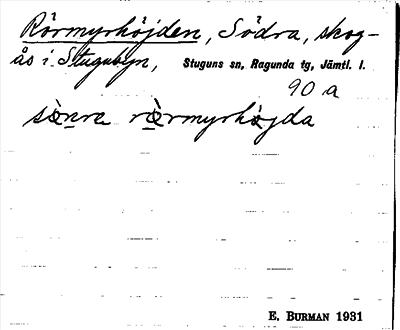 Rörmyrhöjden, Södra, skog-
ås i Stugubyn, Stuguns sn, Ragunda tg, Jämtl. l.
90 a
sö̀nra rö̀rmyrhöjda
E. BURMAN 1931